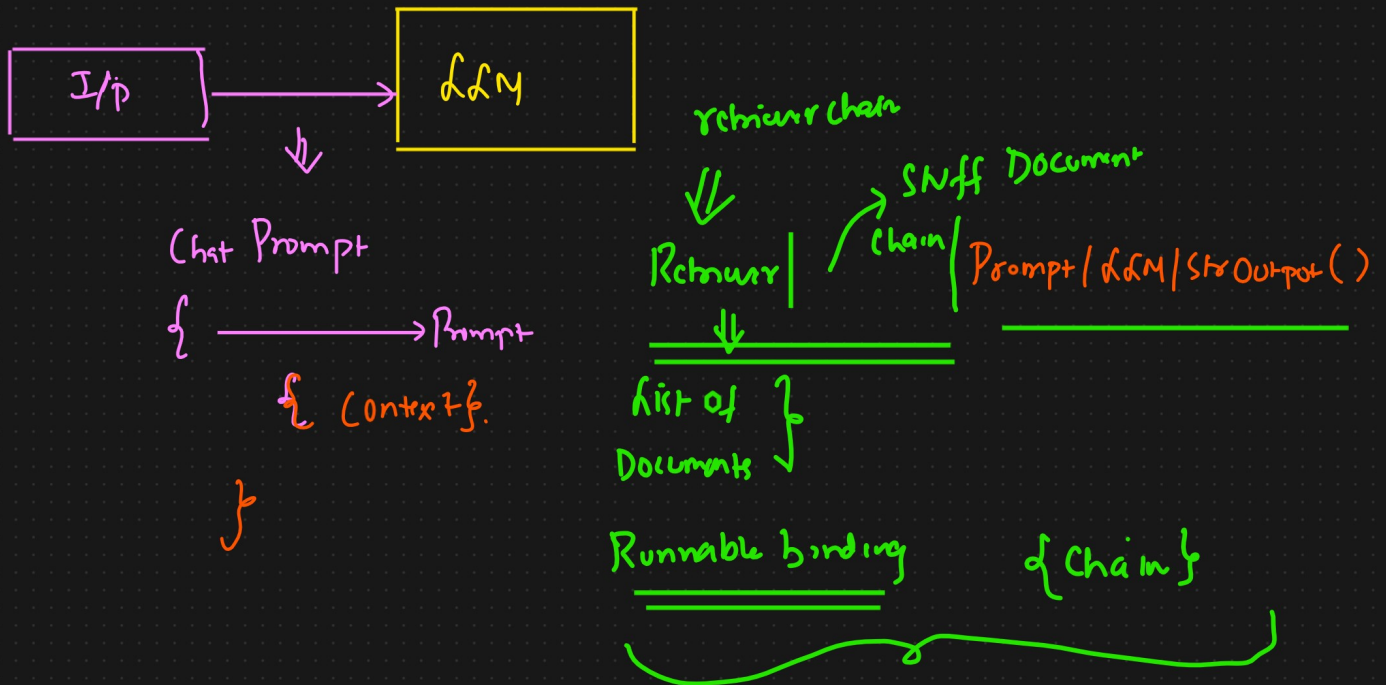 I/p
LLM
Chat Prompt
{ → Prompt
{ Context }.
}
retriever chain
Stuff Document
Chain |
Retriever |
Prompt / LLM / StrOutput ()
List of }
Documents
Runnable binding
{ Chain }